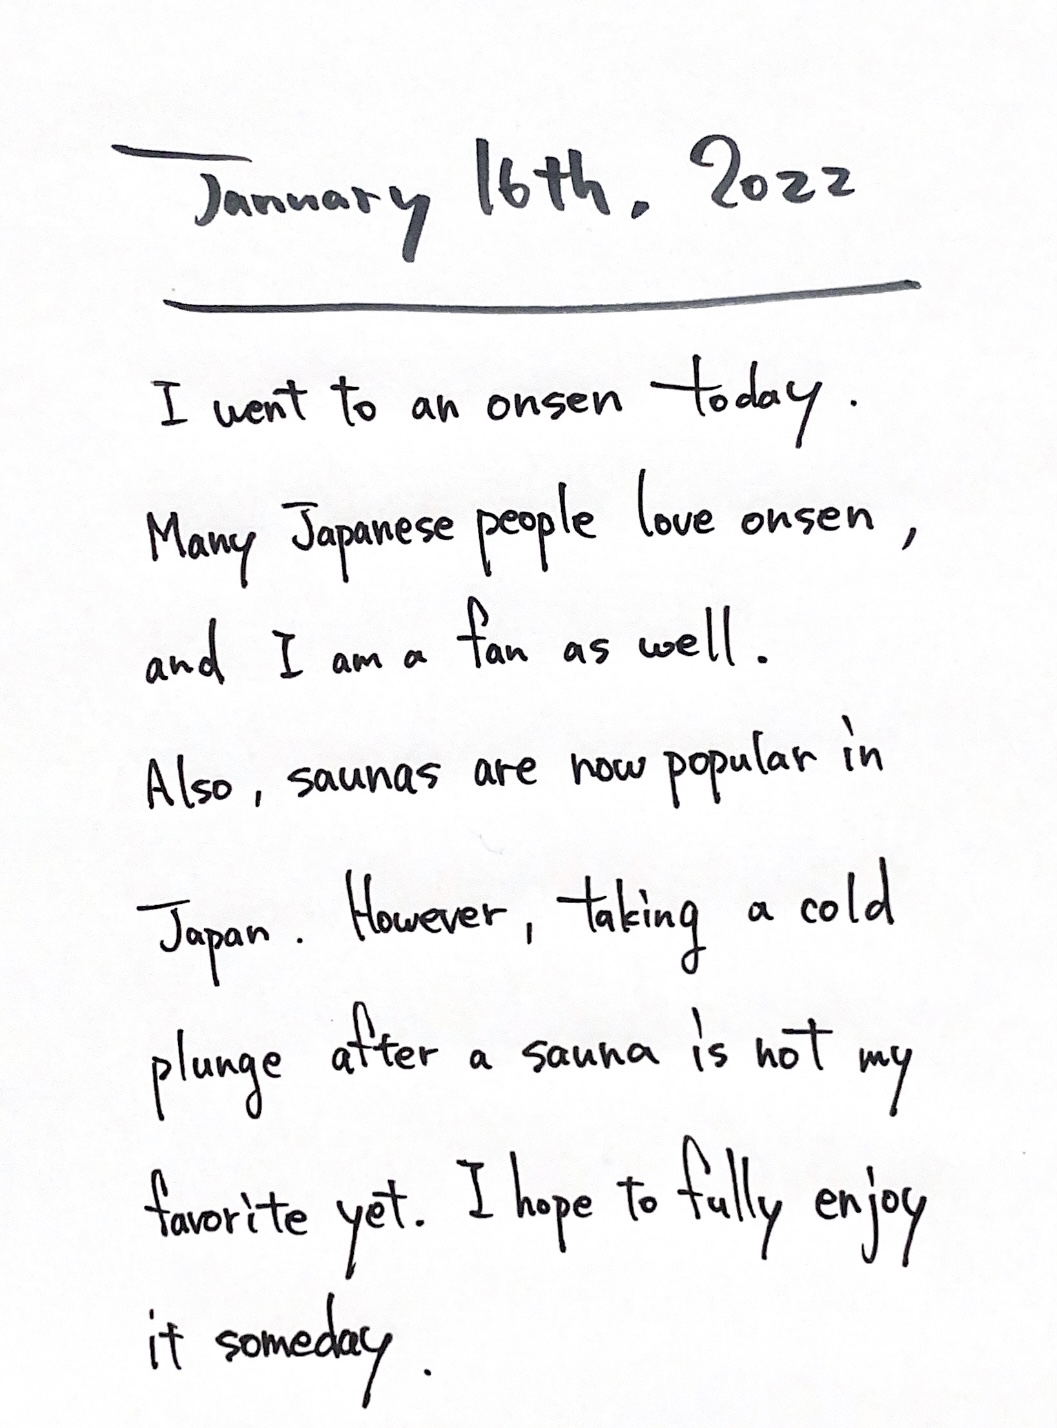 January 16th, 2022
I went to an onsen today.
Many Japanese people love onsen,
and I am a fan as well.
Also, saunas are now popular in
Japan. However, taking a cold
plunge after a sauna is not my
favorite yet. I hope to fully enjoy
it someday.